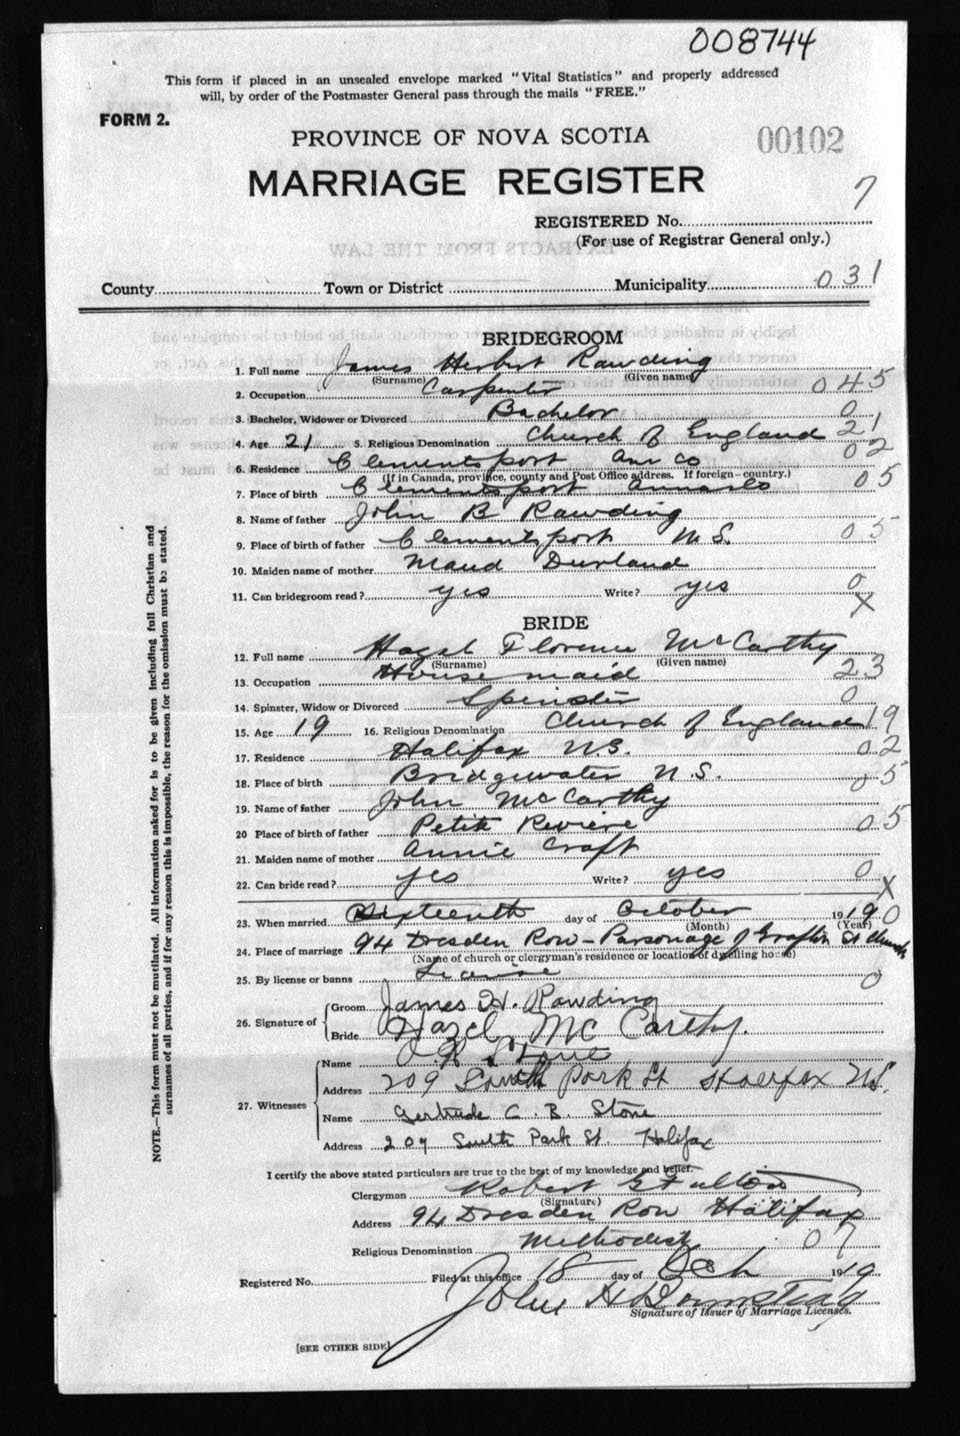 008744
This form if placed in an unsealed envelope marked "Vital Statistics" and properly addressed
will, by order of the Postmaster General pass through the mails "FREE."
FORM 2.
PROVINCE OF NOVA SCOTIA
00102
MARRIAGE REGISTER
7
REGISTERED No.
(For use of Registrar General only.)
County Town or District Municipality 031
BRIDEGROOM
1. Full name James Herbert Rawding
(Surname) (Given name)
2. Occupation Carpenter 045
3. Bachelor, Widower or Divorced Bachelor 0
4. Age 21 5. Religious Denomination Church of England 21
6. Residence Clementsport Ann Co 02
(If in Canada, province, county and Post Office address. If foreign—country.)
7. Place of birth Clementsport Annas Co 05
8. Name of father John B Rawding
9. Place of birth of father Clementsport N.S. 05
10. Maiden name of mother Maud Durland
11. Can bridegroom read? yes Write? yes 0
X
BRIDE
12. Full name Hazel Florence McCarthy
(Surname) (Given name)
13. Occupation House maid 23
14. Spinster, Widow or Divorced Spinster 0
15. Age 19 16. Religious Denomination Church of England 19
17. Residence Halifax N.S. 02
18. Place of birth Bridgewater N.S. 05
19. Name of father John McCarthy
20 Place of birth of father Petite Riviere 05
21. Maiden name of mother Annie Craft
22. Can bride read? yes Write? yes 0
X
23. When married Sixteenth day of October 1919 0
(Month) (Year)
24. Place of marriage 94 Dresden Row - Parsonage of Grafton St Church
(Name of church or clergyman's residence or location of dwelling house)
25. By license or banns License 0
26. Signature of Groom James H. Rawding
Bride Hazel McCarthy.
27. Witnesses Name Stone
Address 209 South Park St Halifax N.S.
Name Gertrude C. B. Stone
Address 209 South Park St. Halifax
I certify the above stated particulars are true to the best of my knowledge and belief.
Clergyman Robert G Fulton
(Signature)
Address 94 Dresden Row Halifax
Religious Denomination Methodist 07
Registered No. Filed at this office 18 day of Oct 1919
John H
Signature of Issuer of Marriage Licenses.
[SEE OTHER SIDE]
NOTE.—This form must not be mutilated. All information asked for is to be given including full Christian and
surnames of all parties, and if for any reason this is impossible, the reason for the omission must be stated.